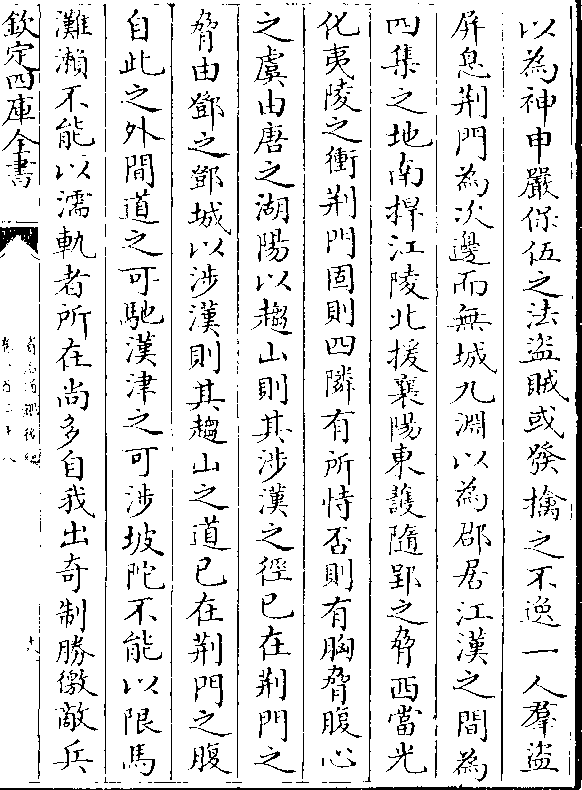 以為神申嚴保伍之法盜賊或發擒之不逸一人羣盜
屏息荆門為次邊而無城九淵以為郡居江漢之間為
四集之地南捍江陵北援襄陽東護隨郢之脅西當光
化夷陵之衝荆門固則四隣有所恃否則有胸脅腹心
之虞由唐之湖陽以趨山則其涉漢之徑已在荆門之
脅由鄧之鄧城以涉漢則其趨山之道已在荆門之腹
自此之外間道之可馳漢津之可涉坡陀不能以限馬
灘瀨不能以濡軌者所在尚多自我出奇制勝徼敵兵
欽定四庫全書